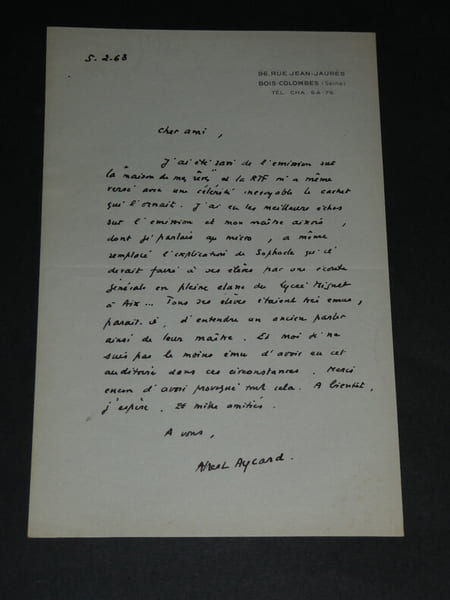 5.2.63
96, RUE JEAN-JAURÈS
BOIS-COLOMBES (Seine)
TÉL. CHA. 64-76
Cher ami,
J'ai été ravi de l'émission sur
la "maison de mes rêves" et la RTF m'a même
versé avec une célérité incroyable le cachet
qui l'ornait. J'ai eu les meilleurs échos
sur l'émission et mon maître aixois,
dont je parlais au micro, a même
remplacé l'explication de Sophocle qu'il
devait faire à ses élèves par une écoute
générale en pleine classe du Lycée Mignet
à Aix... Tous ses élèves étaient très émus,
paraît-il, d'entendre un ancien parler
ainsi de leur maître. Et moi je ne
suis pas le moins ému d'avoir eu cet
auditoire dans ces circonstances. Merci
encore d'avoir provoqué tout cela. A bientôt,
j'espère. Et mille amitiés.
A vous,
Albert Aycard.